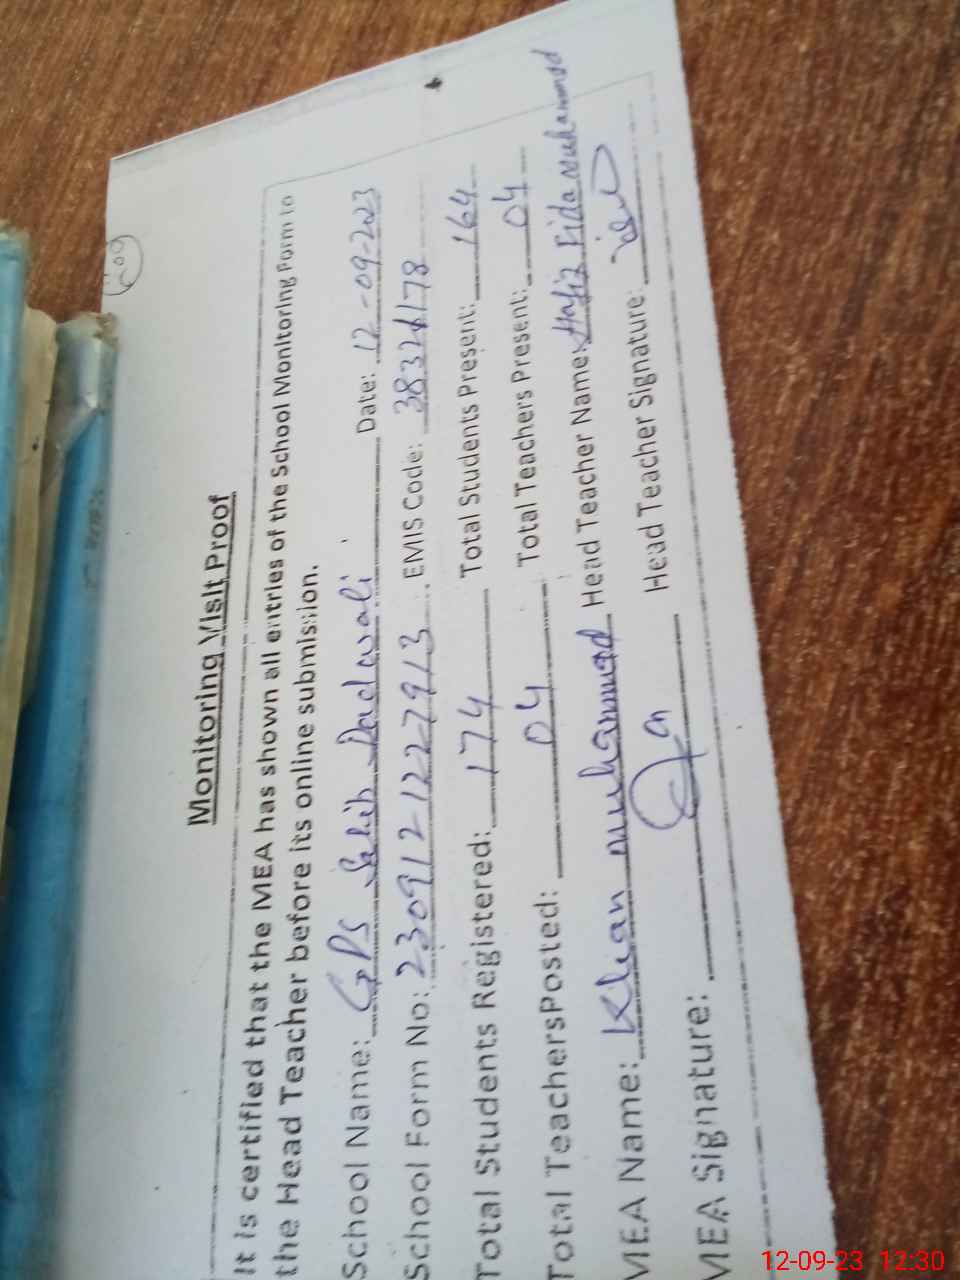 Monitoring Visit Proof
It is certified that the MEA has shown all entries of the School Monitoring Form to
the Head Teacher before its online submission.
School Name: GPS Sahib Dadwali Date: 12-09-2023
School Form No: 2309121227913 EMIS Code: 38321178
Total Students Registered: 174 Total Students Present: 164
Total TeachersPosted: 04 Total Teachers Present: 04
MEA Name: Khan muhammad Head Teacher Name: Hafiz Fida Muhammad
MEA Signature: Head Teacher Signature:
12-09-23 12:30